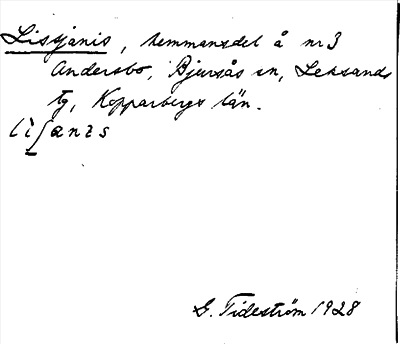 Lissjanis, hemmansdel å nr 3
Andersbo, Bjursås sn, Leksands
tg, Kopparbergs län.
lìʃanɪs
G. Tideström 1928